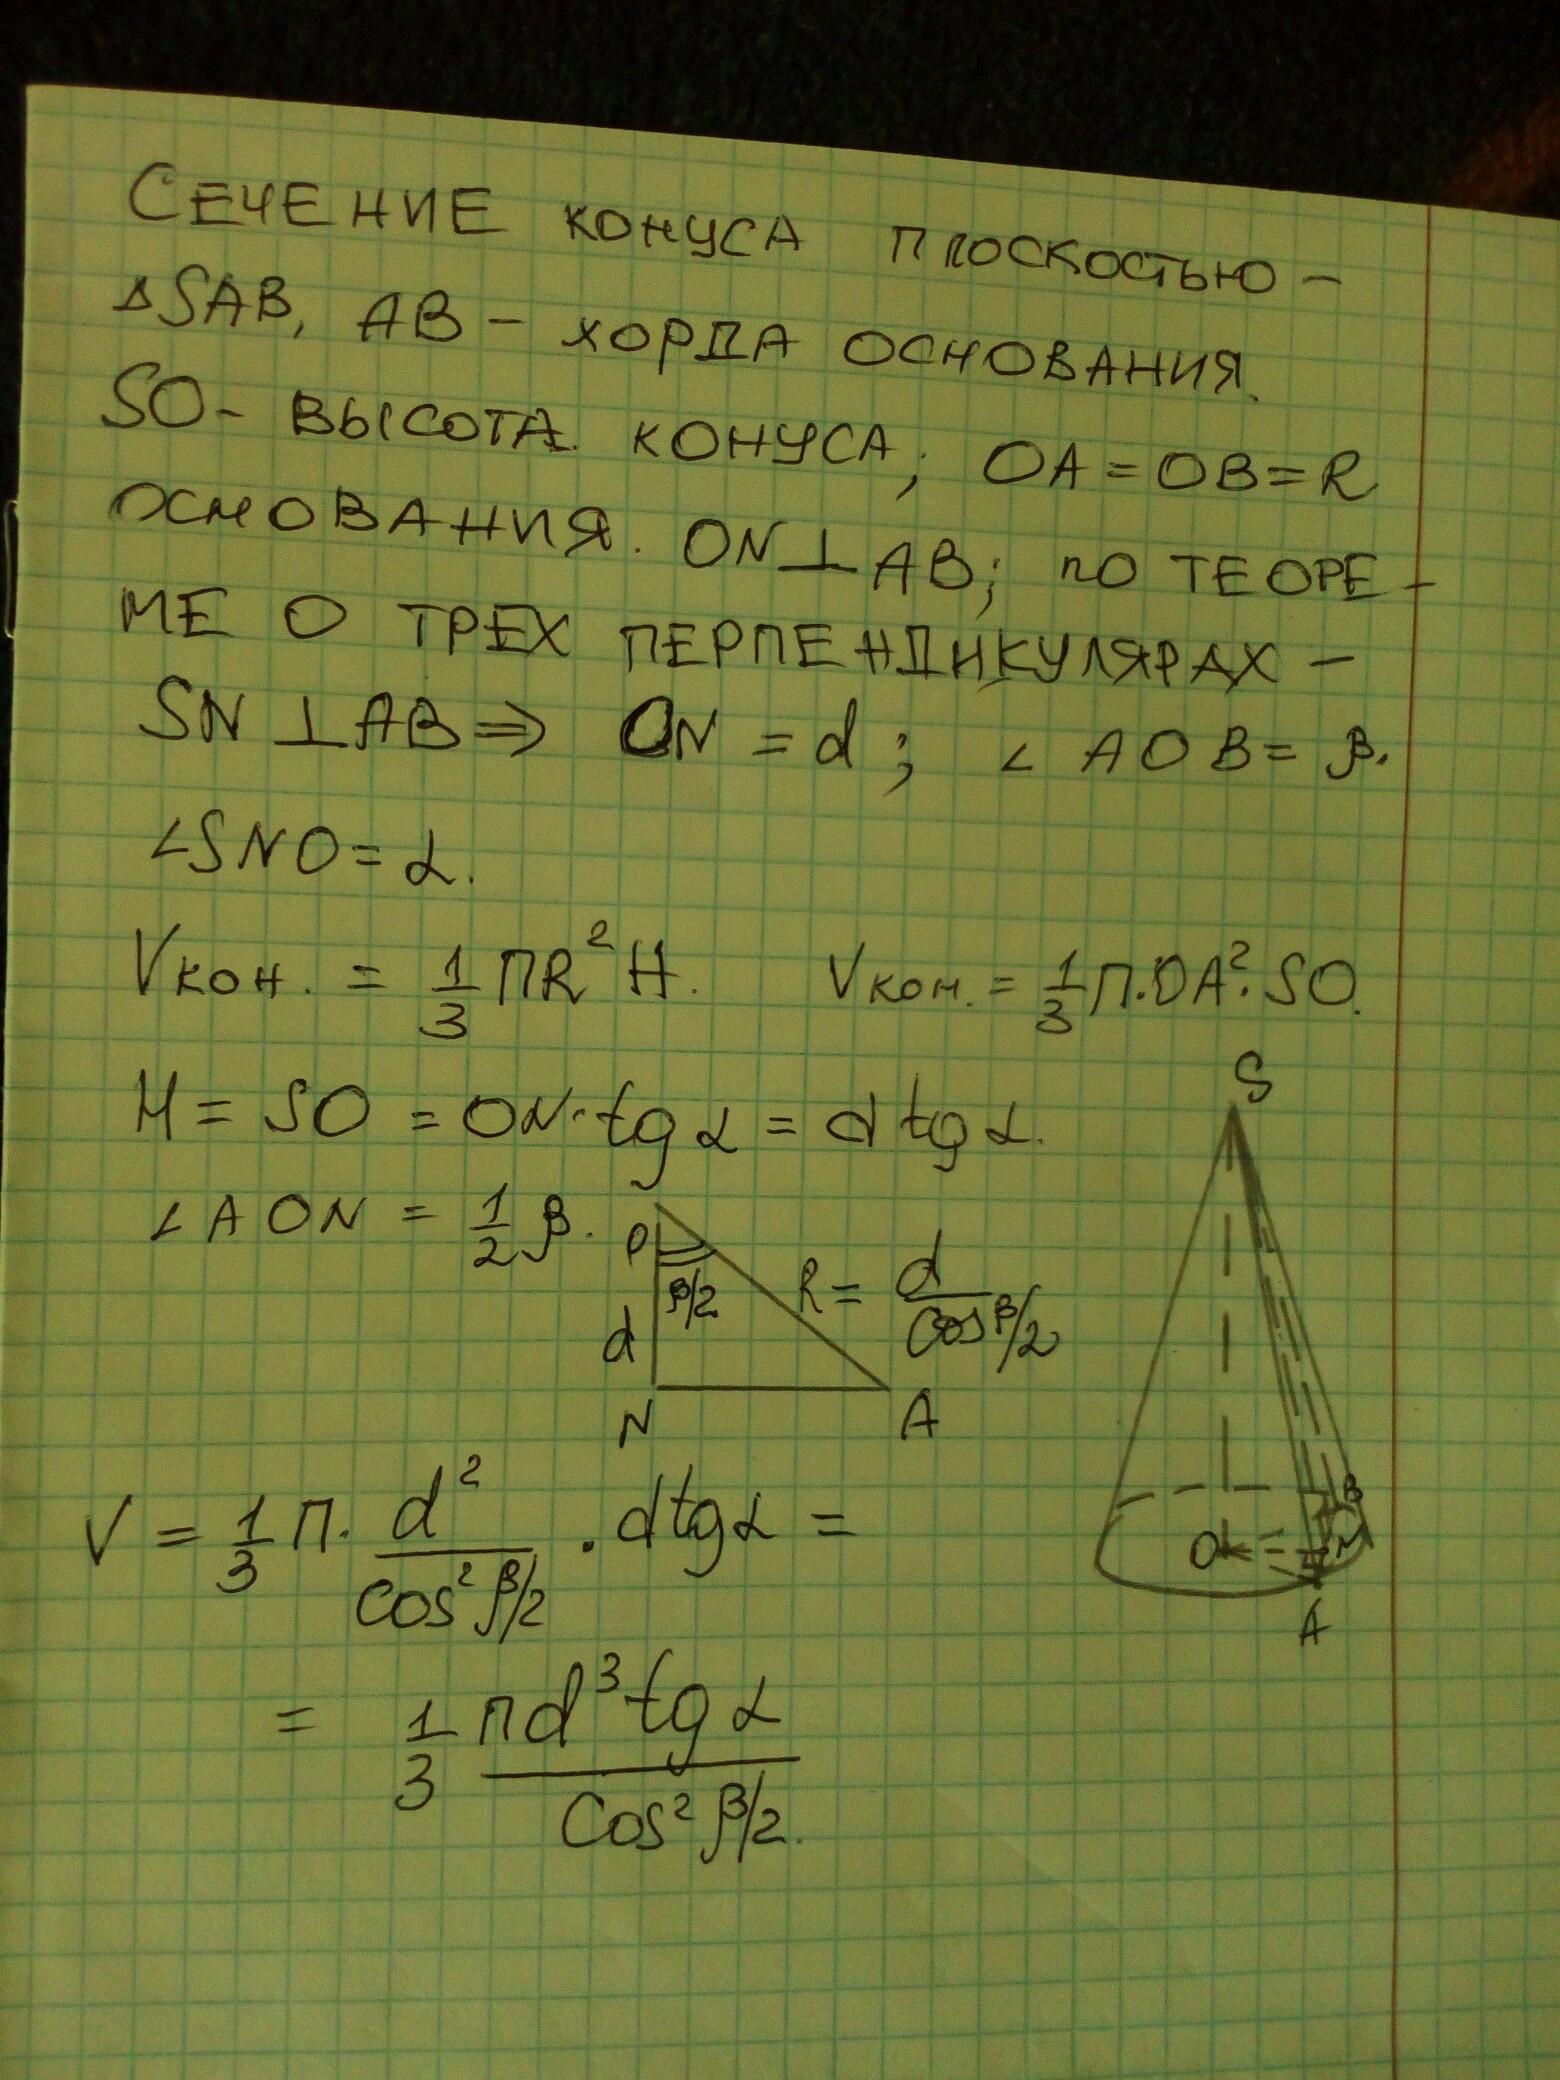 СЕЧЕНИЕ КОНУСА ПЛОСКОСТЬЮ –
△SAB, AB – ХОРДА ОСНОВАНИЯ.
SO – ВЫСОТА КОНУСА; OA = OB = R
ОСНОВАНИЯ. ON ⊥ AB; ПО ТЕОРЕ-
МЕ О ТРЕХ ПЕРПЕНДИКУЛЯРАХ –
SN ⊥ AB ⇒ ON = d; ∠ AOB = β.
∠SNO = α.
Vкон. = 1/3 πR² H. Vкон. = 1/3 π·OA²·SO.
H = SO = ON·tg α = d tg α.
∠ AON = 1/2 β.
O
β/2
d
R = d/cos β/2
N
A
S
B
O
N
A
V = 1/3 π · d²/cos² β/2 · d tg α =
= 1/3 πd³ tg α/cos² β/2.